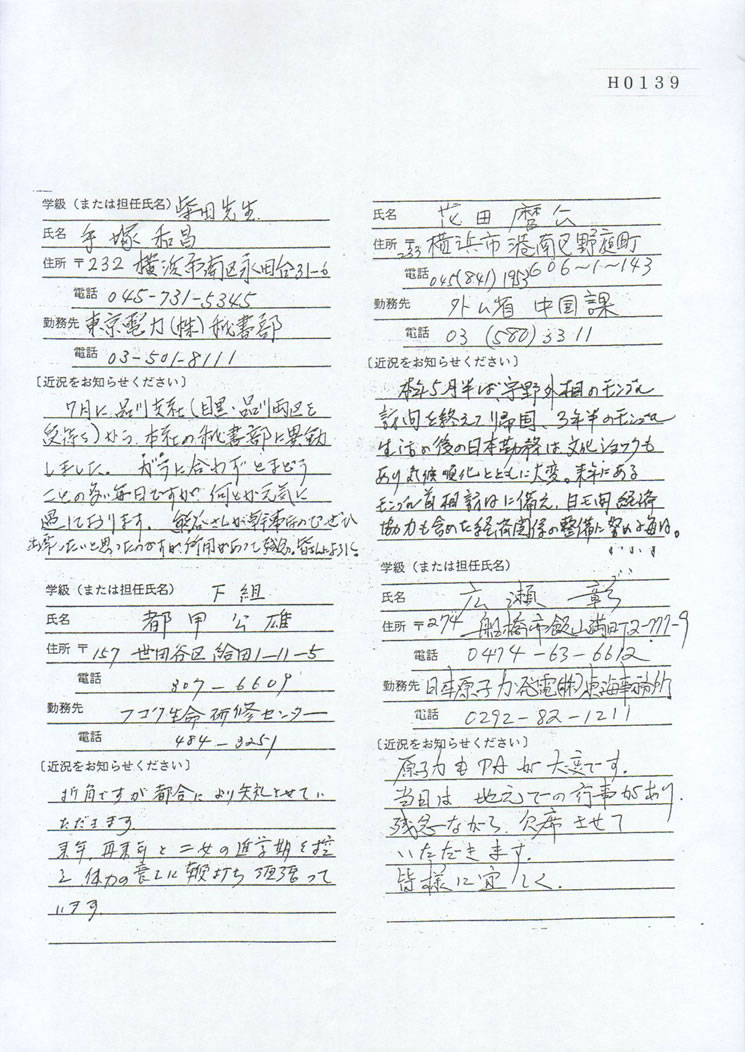 H0139
学級（または担任氏名）柴田先生
氏名 手塚和昌
住所 〒232 横浜市南区永田台31-6
電話 045-731-5345
勤務先 東京電力(株)秘書部
電話 03-501-8111
〔近況をお知らせください〕
7月に品川支社(目黒・品川両区を
受持ち)から、本社の秘書部に異動
しました。ガラに合わずとまどう
ことの多い毎日ですが、何とか元気に
過しております。
学級（または担任氏名） F組
氏名 都甲公雄
住所 〒157 世田谷区給田1-11-5
電話 307-6609
勤務先 フコク生命研修センター
電話 484-3251
〔近況をお知らせください〕
折角ですが都合により失礼させてい
ただきます。
来年、再来年と二女の進学期を控
え、体力の衰えに鞭打ち頑張って
います。
氏名 花田麿公
住所 〒233 横浜市港南区野庭町
606-1-143
電話 045(841)1953
勤務先 外ム省 中国課
電話 03 (580) 3311
〔近況をお知らせください〕
本年5月半ば、宇野外相のモンゴル
訪問を終えて帰国、3年半のモンゴル
生活の後の日本勤務は文化ショックも
あり気候順化とともに大変。来年にある
モンゴル首相訪日に備え、日モ間経済
協力も含めた経済関係の整備に努める毎日。
学級（または担任氏名）
氏名 広瀬 彰
住所 〒274 船橋市飯山満町2-777-9
電話 0474-63-6612
勤務先 日本原子力発電(株)東海事務所
電話 0292-82-1211
〔近況をお知らせください〕
原子力もPAが大変です。
当日は地元での行事があり、
残念ながら、欠席させて
いただきます。
皆様に宜しく。